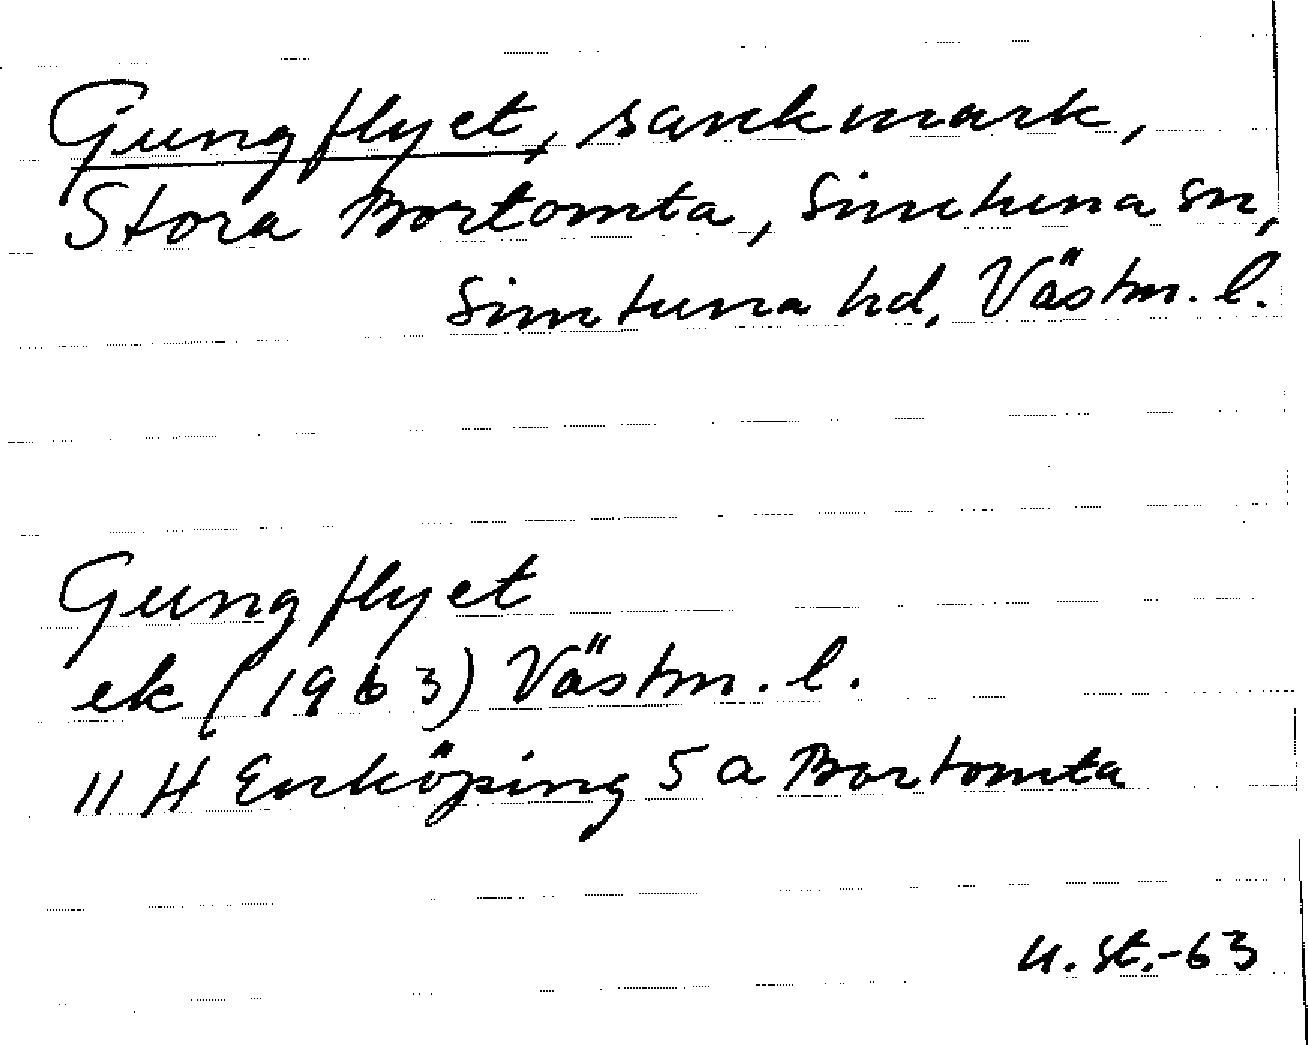 Gungflyet, sankmark,
Stora Bortomta, Simtuna sn,
Simtuna hd, Västm. l.
Gungflyet
ek (1963) Västm. l.
11 H Enköping 5 a Bortomta
U. St.-63